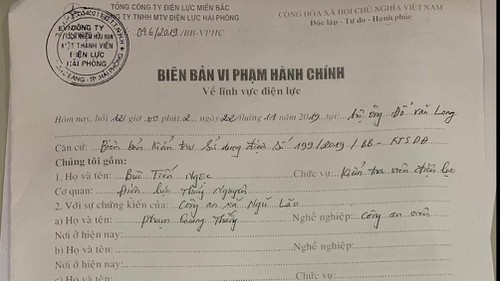 TỔNG CÔNG TY ĐIỆN LỰC MIỀN BẮC
CÔNG TY TNHH MTV ĐIỆN LỰC HẢI PHÒNG
CỘNG HÒA XÃ HỘI CHỦ NGHĨA VIỆT NAM
Độc lập - Tự do - Hạnh phúc
096/2019/BB-VPHC
CÔNG TY
TRÁCH NHIỆM HỮU HẠN
MỘT THÀNH VIÊN
ĐIỆN LỰC
HẢI PHÒNG
BIÊN BẢN VI PHẠM HÀNH CHÍNH
Về lĩnh vực điện lực
Hôm nay, hồi 12 giờ 00 phút, ngày 22 tháng 11 năm 2019 tại: hộ ông Đỗ Văn Long
Căn cứ: Biên bản kiểm tra sử dụng điện Số 199/2019/BB-KTSDĐ
Chúng tôi gồm:
1. Họ và tên: Bùi Tiến Ngọc Chức vụ: Kiểm tra viên điện lực
Cơ quan: Điện lực Thủy Nguyên
2. Với sự chứng kiến của: Công an xã Ngũ Lão
a) Họ và tên: Phạm Quang Thắng Nghề nghiệp: Công an viên
Nơi ở hiện nay:
b) Họ và tên: Nghề nghiệp:
Nơi ở hiện nay:
c) Họ và tên: Chức vụ: